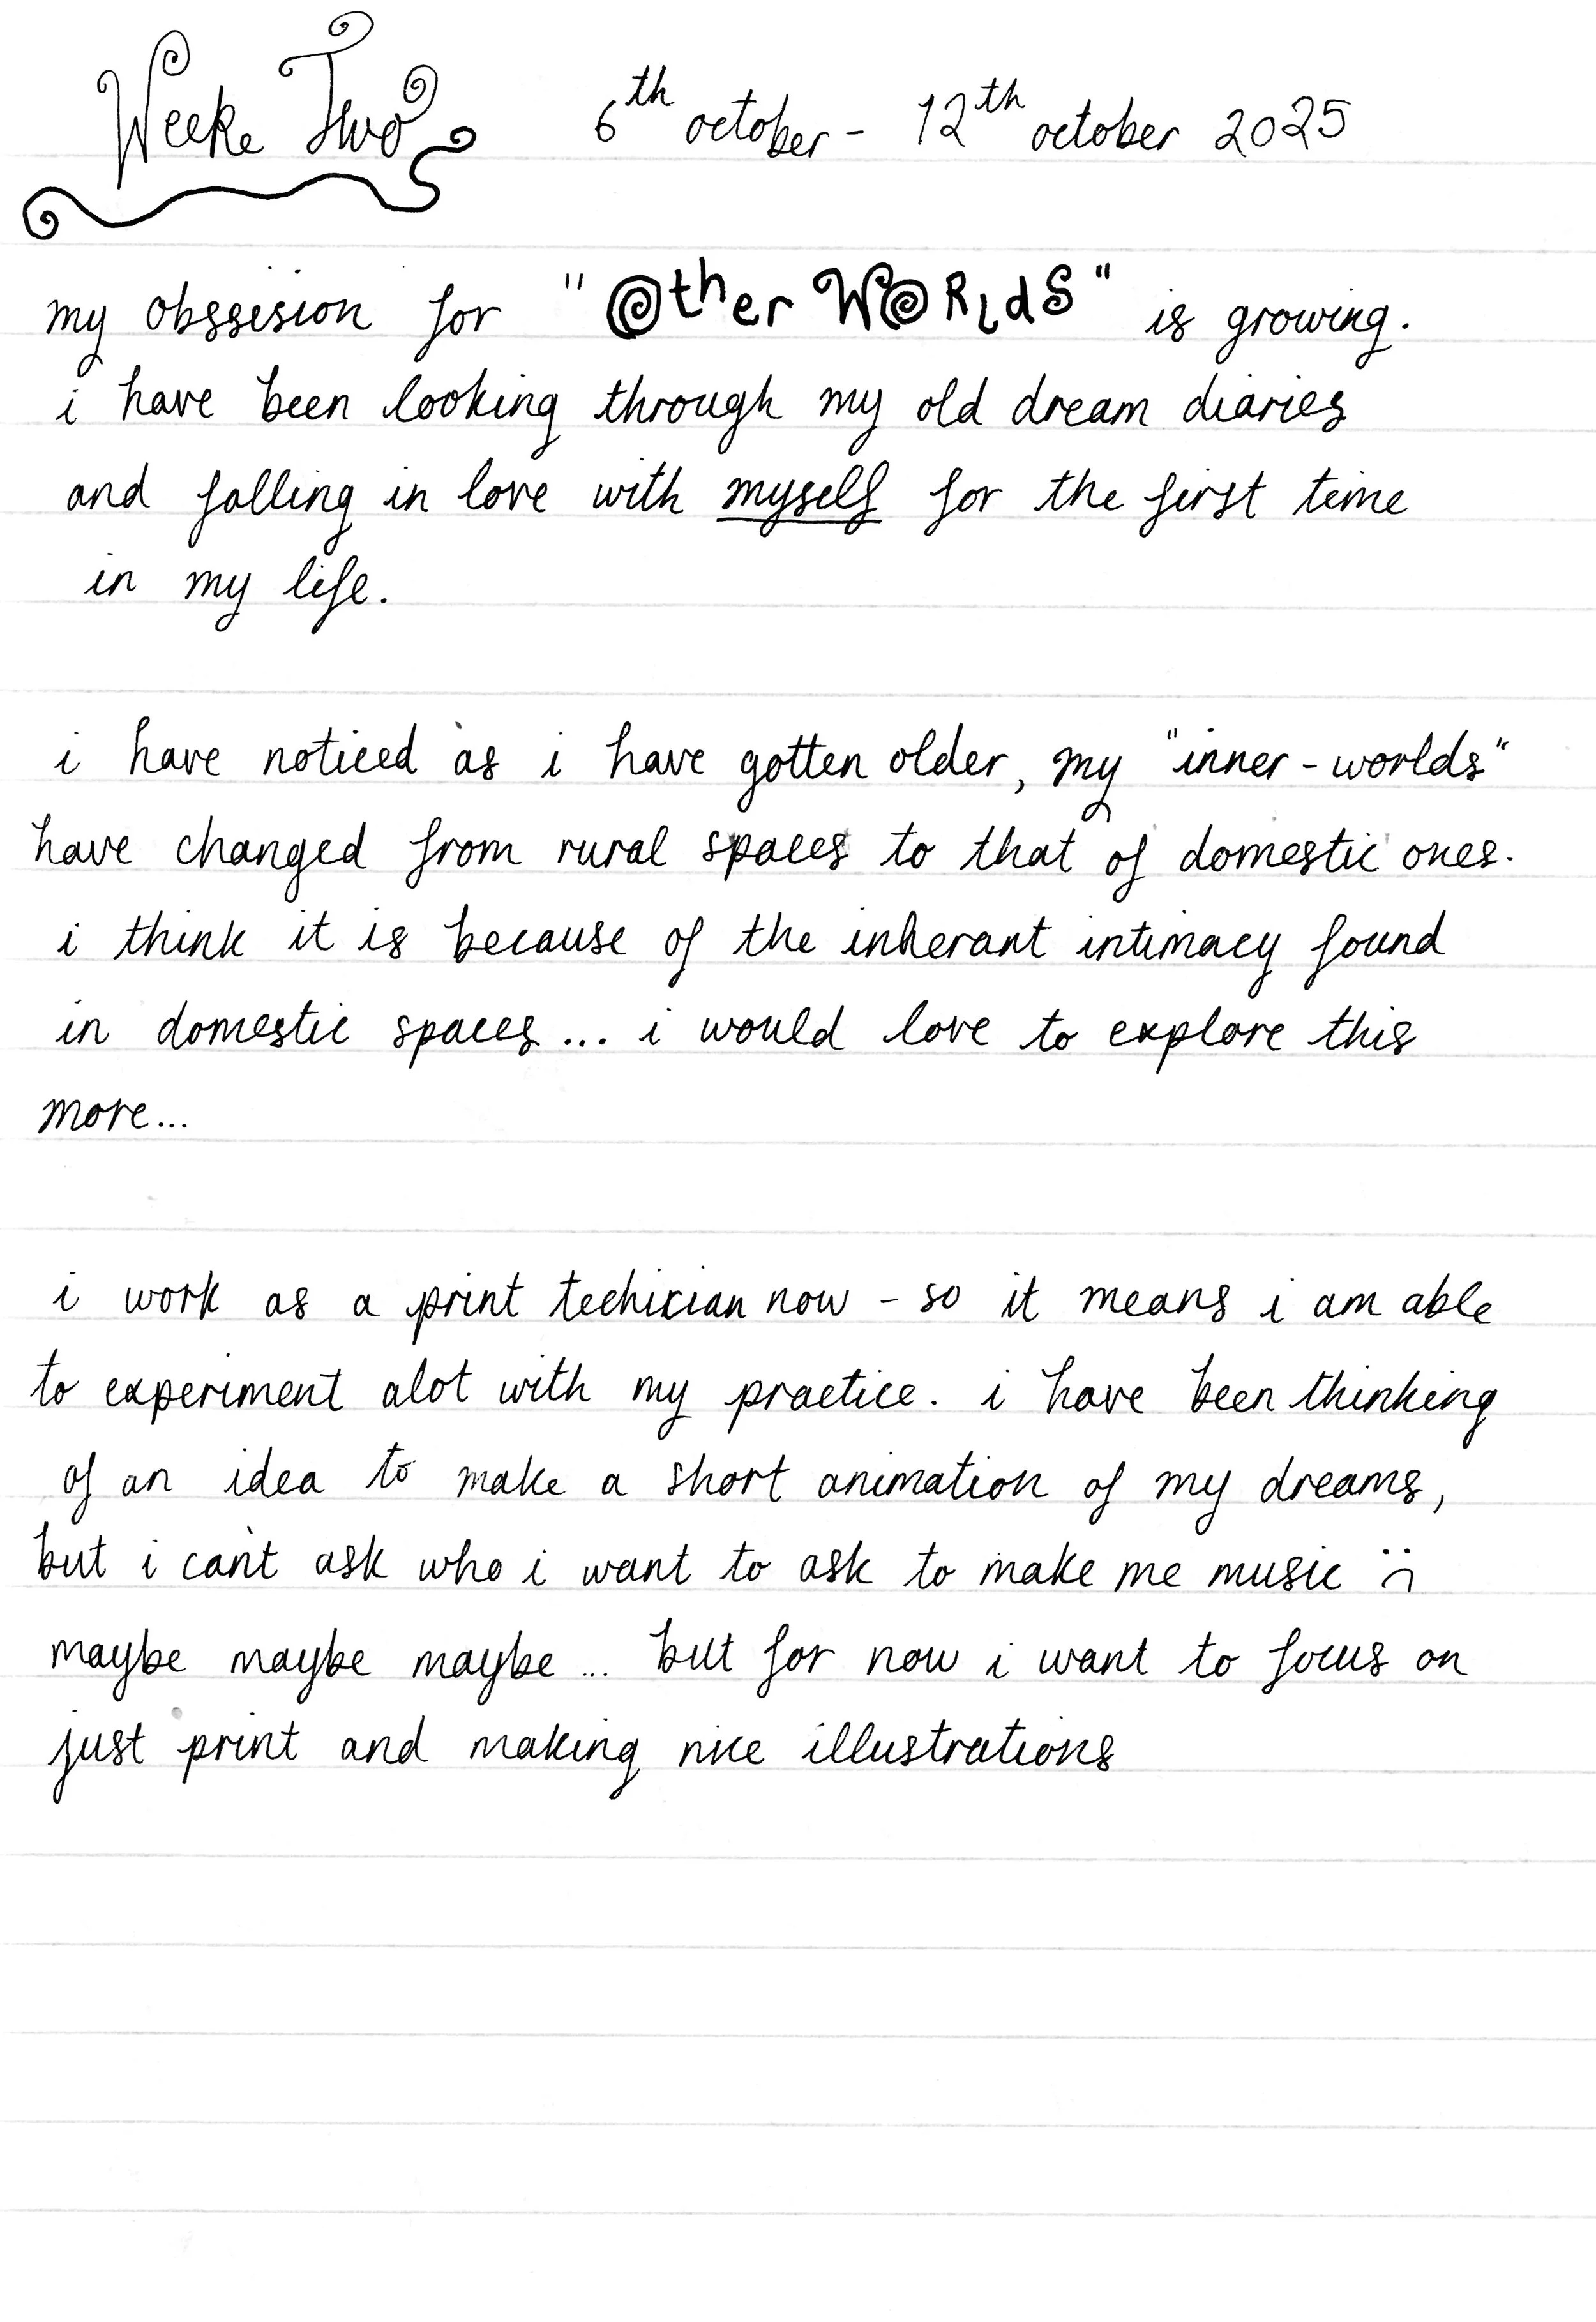 Weeke Two 6th october - 12th october 2025
my obssesion for "Other WORldS" is growing.
i have been looking through my old dream diaries
and falling in love with myself for the first time
in my life.
i have noticed as i have gotten older, my "inner-worlds"
have changed from rural spaces to that of domestic ones.
i think it is because of the inherant intimacy found
in domestic spaces... i would love to explore this
more...
i work as a print techician now - so it means i am able
to experiment alot with my practice. i have been thinking
of an idea to make a short animation of my dreams,
but i can't ask who i want to ask to make me music :(
maybe maybe maybe ... but for now i want to focus on
just print and making nice illustrations